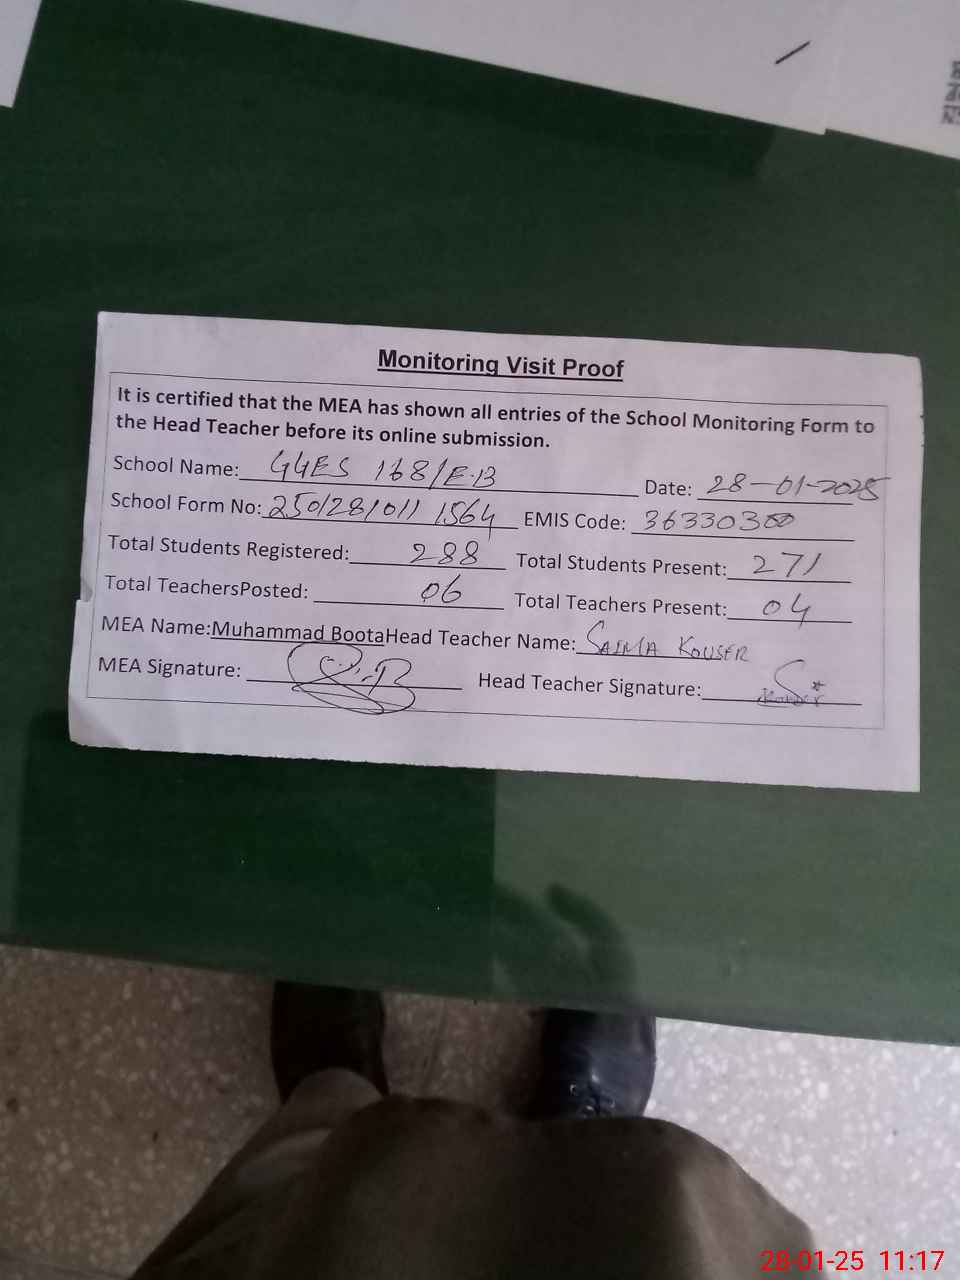 Monitoring Visit Proof
It is certified that the MEA has shown all entries of the School Monitoring Form to
the Head Teacher before its online submission.
School Name: GGES 168/E.B Date: 28-01-2025
School Form No: 250128/011 1564 EMIS Code: 36330300
Total Students Registered: 288 Total Students Present: 271
Total TeachersPosted: 06 Total Teachers Present: 04
MEA Name:Muhammad BootaHead Teacher Name: SAIMA KOUSER
MEA Signature: Head Teacher Signature:
28-01-25 11:17